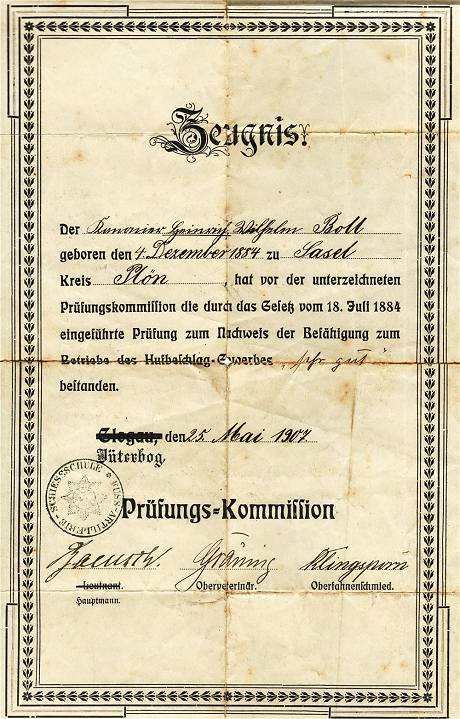 Zeugnis.
Der Kanonier Heinrich Wilhelm Boll
geboren den 4. Dezember 1884 zu Sasel
Kreis Plön, hat vor der unterzeichneten
Prüfungskommission die durch das Gesetz vom 18. Juli 1884
eingeführte Prüfung zum Nachweis der Befähigung zum
Betriebe des Hufbeschlag-Gewerbes „sehr gut"
bestanden.
Glogau, den 25. Mai 1907
Jüterbog,
FUSS-ARTILLERIE-SCHIESSSCHULE
Prüfungs-Kommission
Gräning Klingsporn
Leutnant. Oberveterinär. Oberfahnenschmied.
Hauptmann.